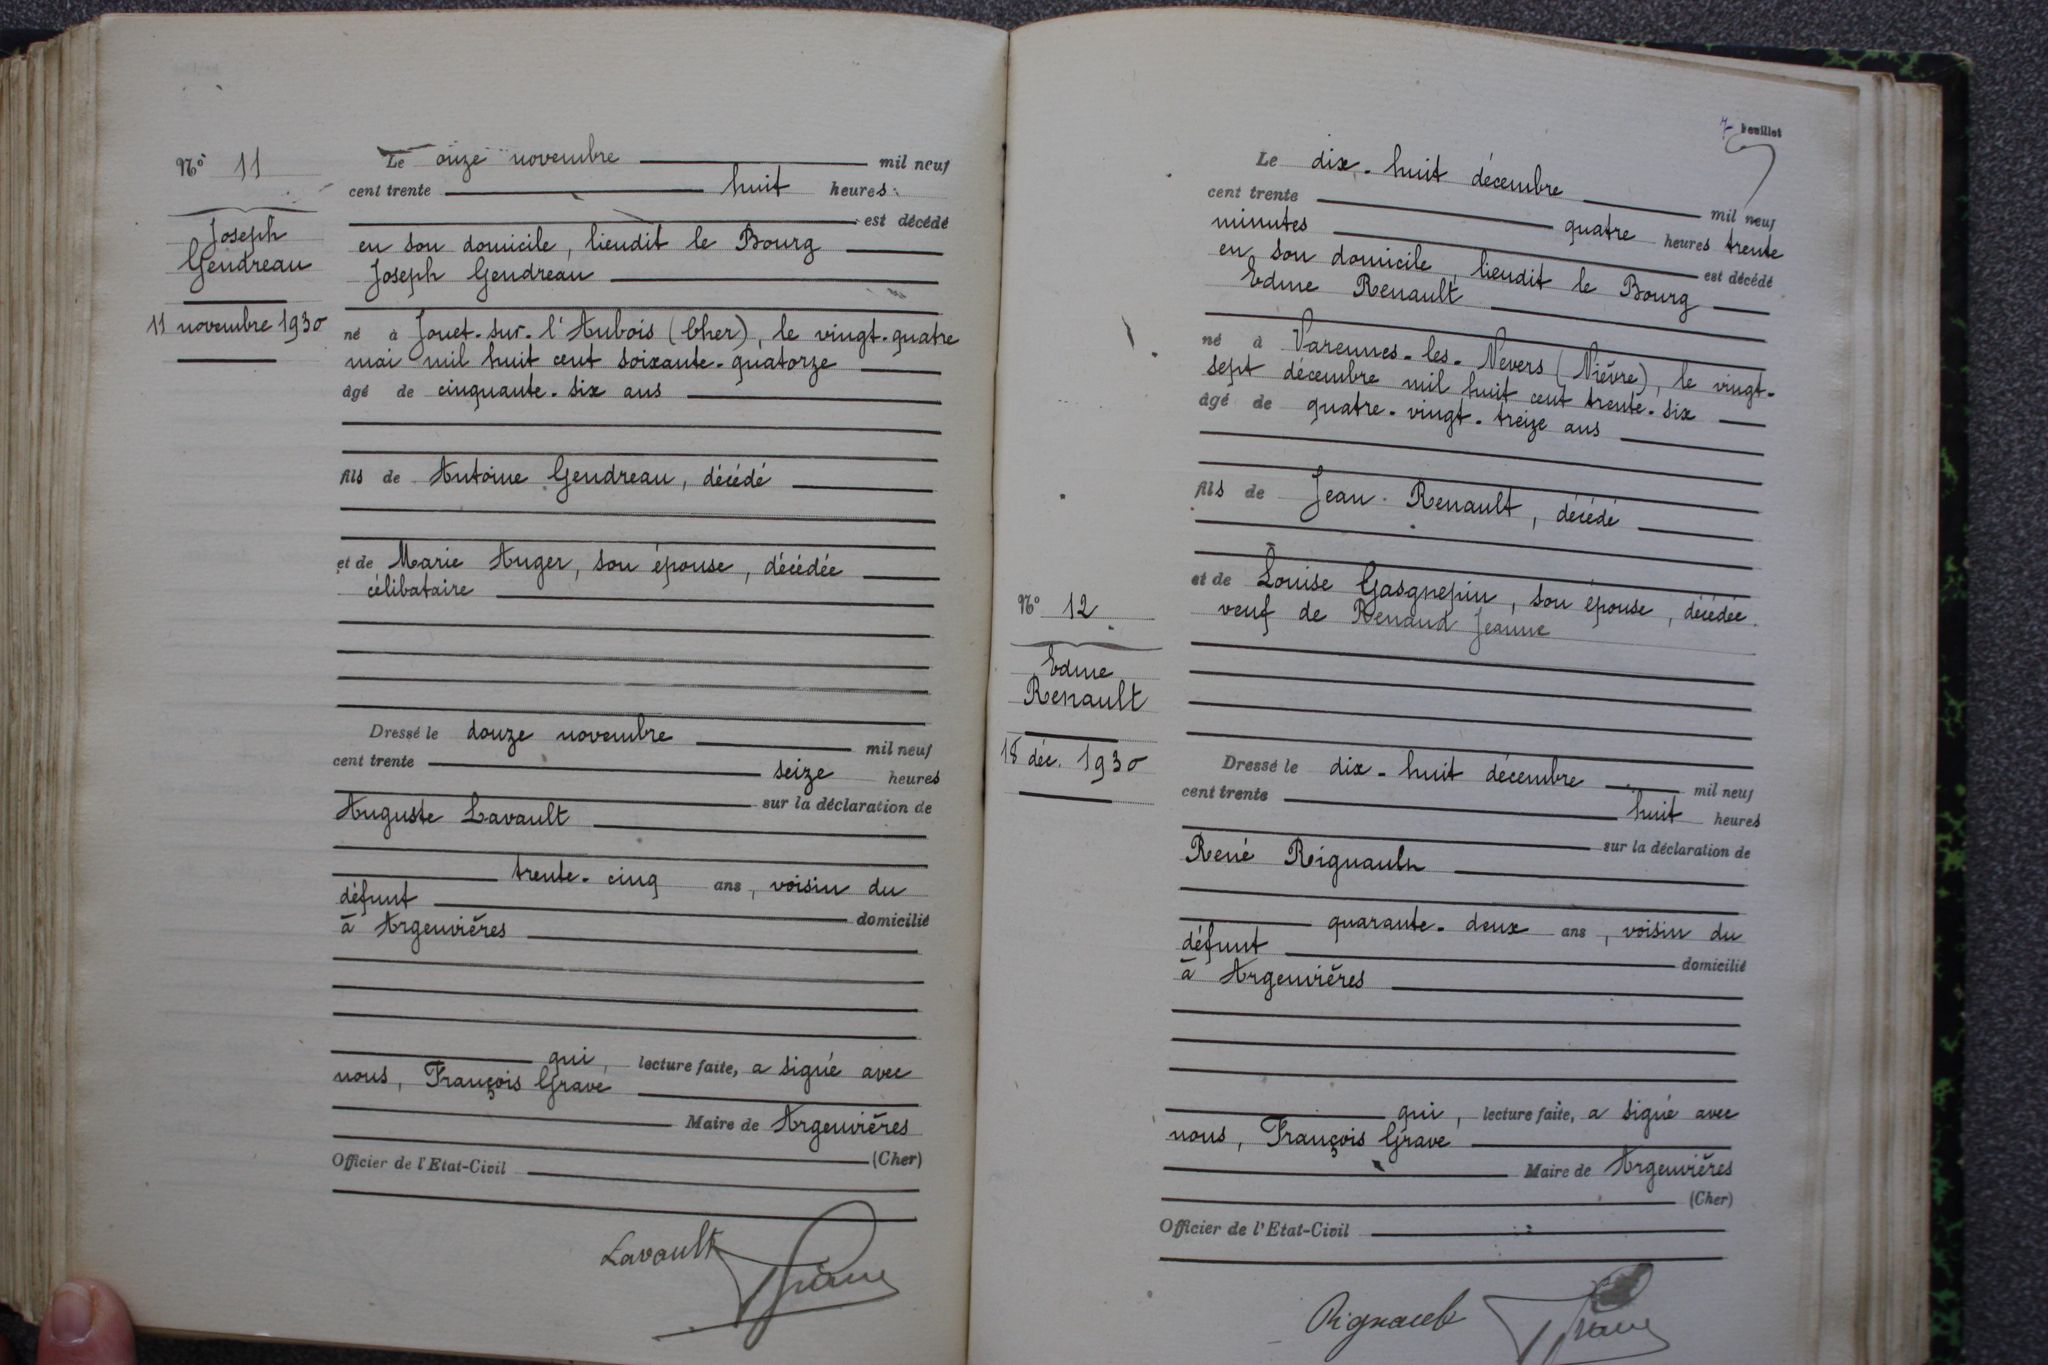 Nº 11
Joseph
Gendreau
11 novembre 1930
Le onze novembre mil neuf
cent trente huit heures
est décédé
en son domicile, lieudit le Bourg
Joseph Gendreau
né à Jouet-sur-l'Aubois (Cher), le vingt-quatre
mai mil huit cent soixante-quatorze
âgé de cinquante-six ans
fils de Antoine Gendreau, décédé
et de Marie Auger, son épouse, décédée
célibataire
Dressé le douze novembre mil neuf
cent trente seize heures
sur la déclaration de
Auguste Lavault
trente-cinq ans, voisin du
défunt domicilié
à Argenvières
qui, lecture faite, a signé avec
nous, François Grave
Maire de Argenvières
(Cher)
Officier de l'Etat-Civil
Lavault Grave
7 Feuillet
Nº 12
Edme
Renault
18 déc. 1930
Le dix-huit décembre mil neuf
cent trente quatre heures trente
minutes est décédé
en son domicile, lieudit le Bourg
Edme Renault
né à Varennes-les-Nevers (Nièvre), le vingt-
sept décembre mil huit cent trente-six
âgé de quatre-vingt-treize ans
fils de Jean Renault, décédé
et de Louise Gasgnepin, son épouse, décédée
veuf de Renaud Jeanne
Dressé le dix-huit décembre mil neuf
cent trente huit heures
sur la déclaration de
René Rignault
quarante-deux ans, voisin du
défunt domicilié
à Argenvières
qui, lecture faite, a signé avec
nous, François Grave
Maire de Argenvières
(Cher)
Officier de l'Etat-Civil
Rignault Grave